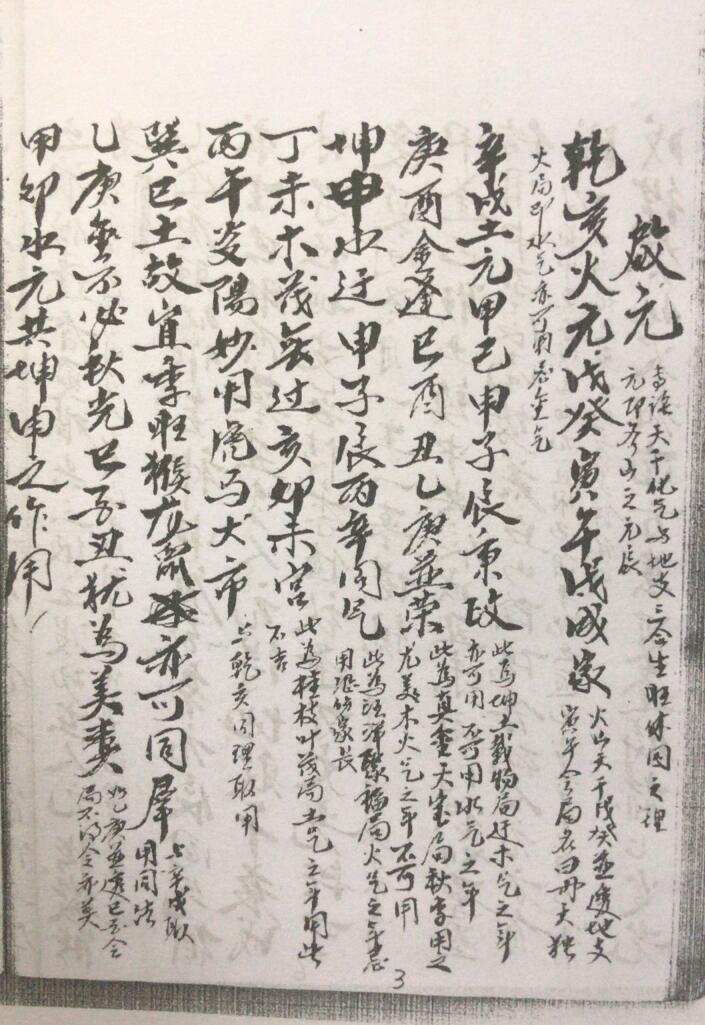 啟元
专論天干化氣与地支三合生旺休囚之理
元即各山之元辰
乾亥火元戊癸寅午戌成家
火山天干戊癸並透地支
寅午合局名曰丙天独
火局即水气亦可用忌金气
辛戌土元甲己甲子辰東政
此為坤土載物局廷木气之年
亦可用 不可用水气之年
庚酉金逢巳酉丑乙庚並荣
此為真金天宝局秋季用之
尤美木火气之年不可用
坤申水迂申子辰丙辛同气
此為 局火气之年忌
用 家長
丁未木茂無过亥卯未宮
此為桂枝叶茂局土气之年用此
不吉
丙午炎陽妙用虎马犬市
与乾亥同理取用
巽巳土故宜季旺猴龙鼠亦可同犀
与辛戌取
用同法
乙庚無不必秋光巳酉丑犹為美責
乙庚並透巳酉合
局不得令亦美
甲卯水元共坤申之作用
3